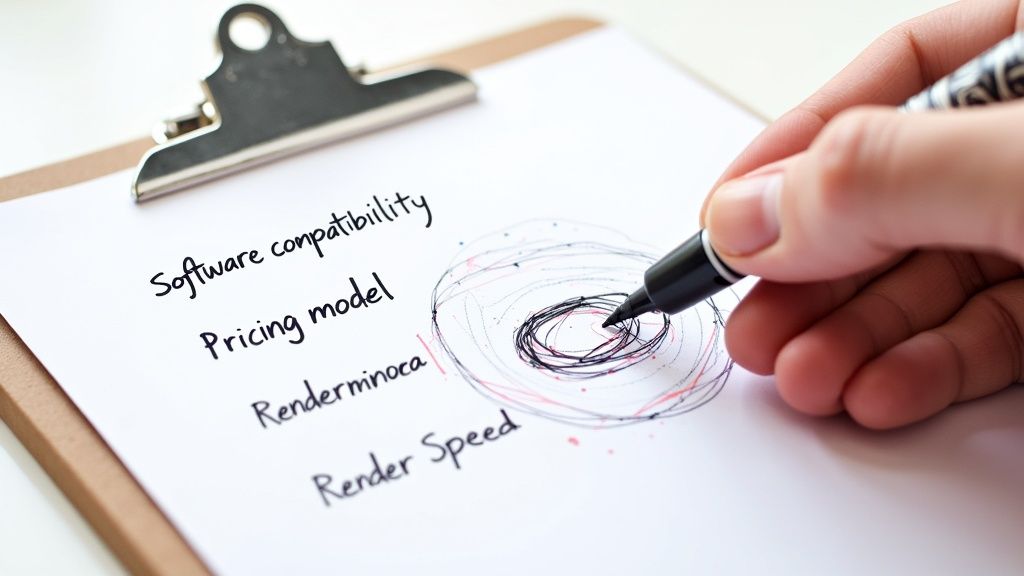 Software compatibiility
Pricing model
Renderminoca
Render Speed